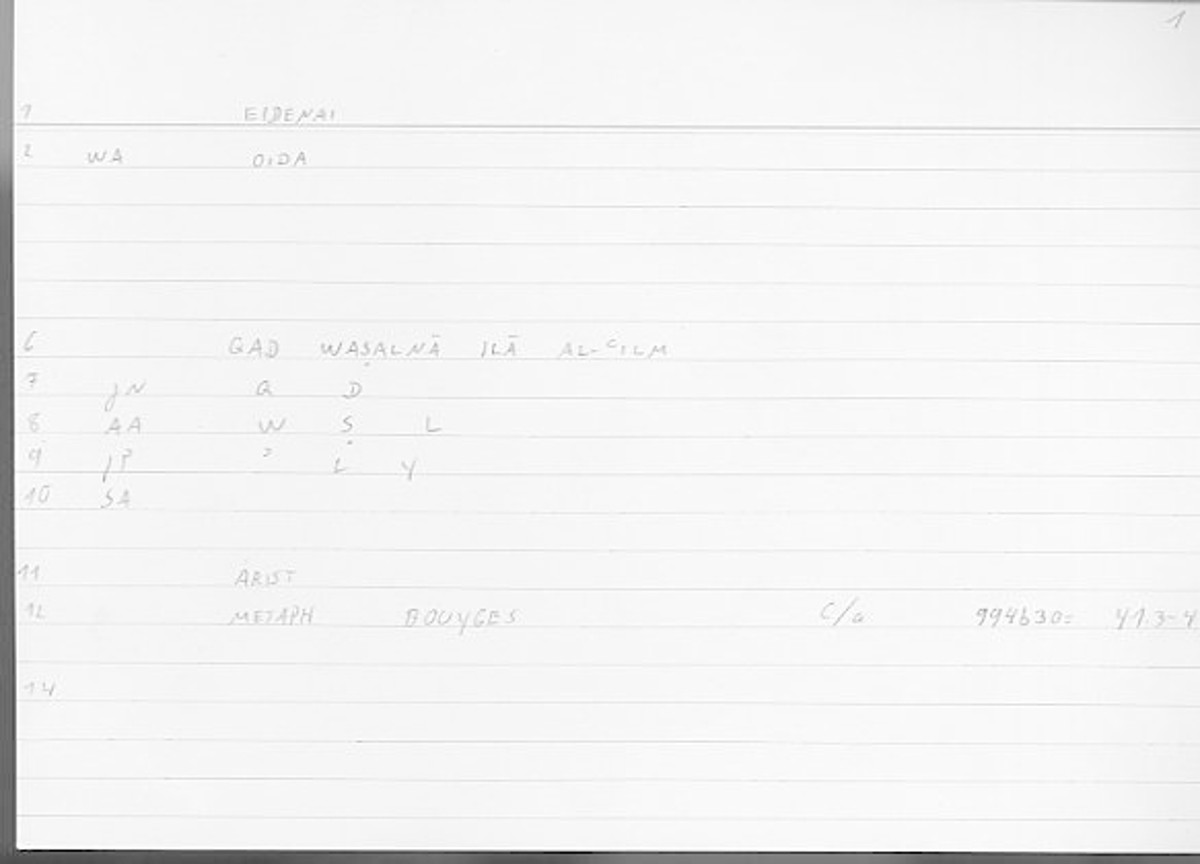 1
1 EIDENAI
2 WA OIDA
6 QAD WAṢALNĀ ILĀ AL-ʿILM
7 JN Q D
8 AA W Ṣ L
9 JP ʾ L Y
10 SA
11 ARIST
12 METAPH BOUYGES C/a 994b30= 41.3-4
14